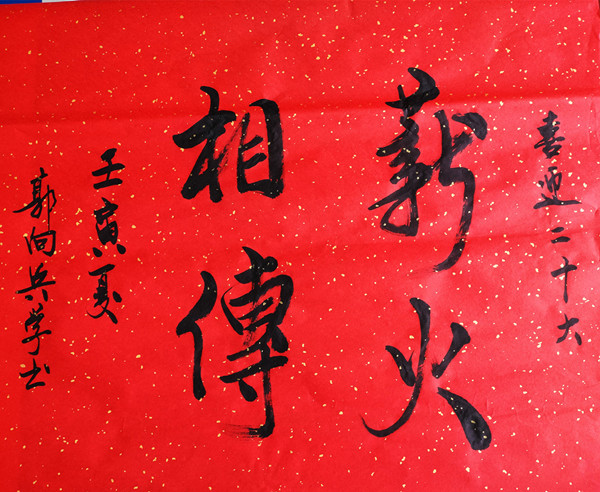 喜迎二十大
薪火
相傳
壬寅夏
郭向兵學书